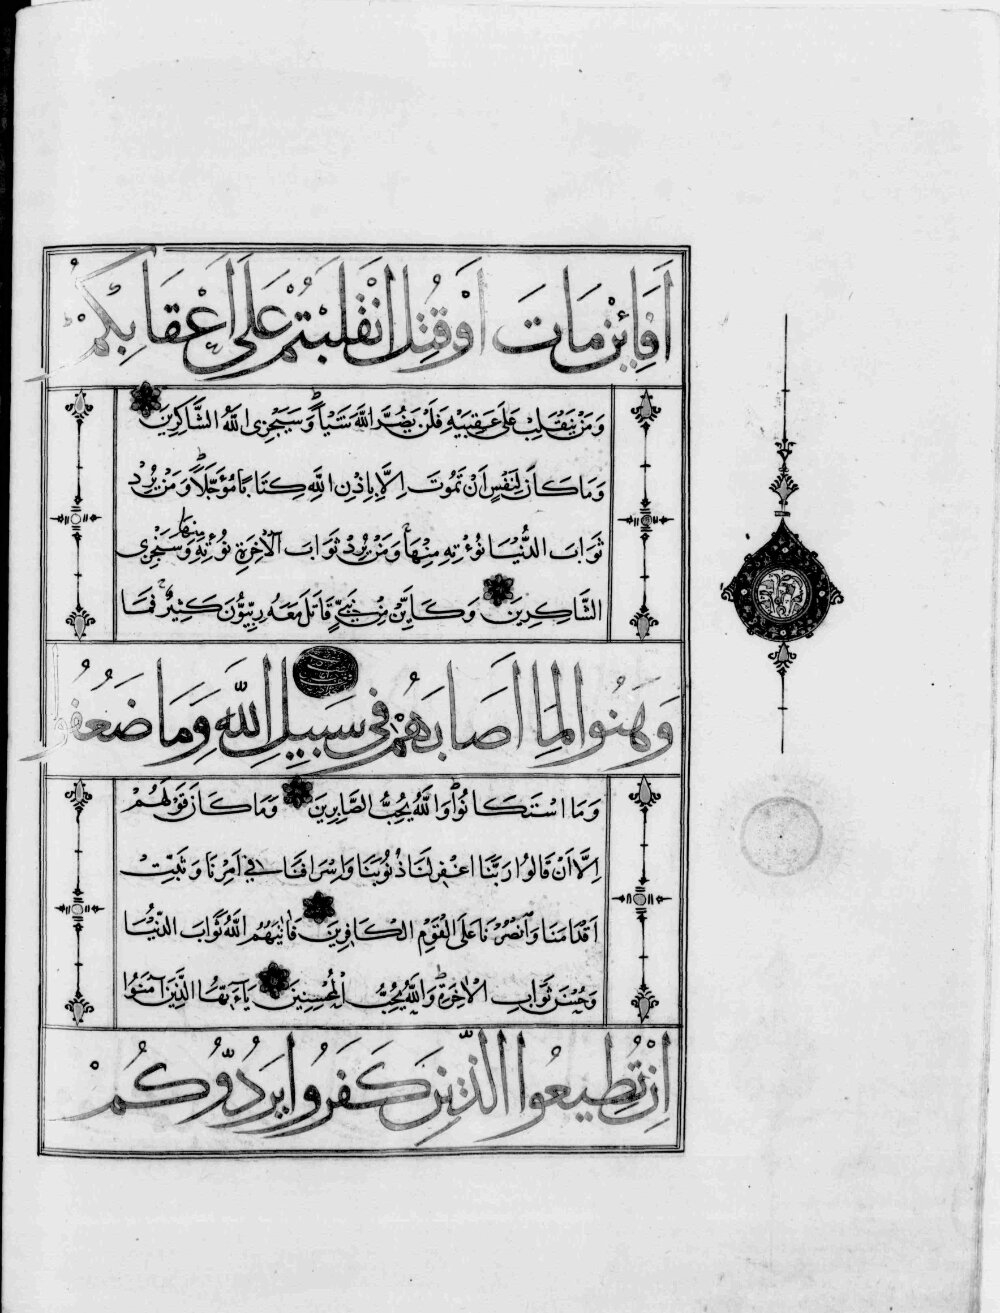 اَفَاِئنْ مَاتَ اَوْ قُتِلَ انْقَلَبْتُمْ عَلَى اَعْقَابِكُمْ
وَمَنْ يَنْقَلِبْ عَلَى عَقِبَيْهِ فَلَنْ يَضُرَّ اللّٰهَ شَيْئاً وَسَيَجْزِى اللّٰهُ الشَّاكِرِينَ
وَمَا كَانَ لِنَفْسٍ اَنْ تَمُوتَ اِلَّا بِاِذْنِ اللّٰهِ كِتَابًا مُؤَجَّلًا وَمَنْ يُرِدْ
ثَوَابَ الدُّنْيَا نُؤْتِهِ مِنْهَا وَمَنْ يُرِدْ ثَوَابَ الْاٰخِرَةِ نُؤْتِهِ مِنْهَا وَسَنَجْزِى
الشَّاكِرِينَ وَكَاَيِّنْ مِنْ نَبِىٍّ قَاتَلَ مَعَهُ رِبِّيُّونَ كَثِيرٌ فَمَا
وَهَنُوا لِمَا اَصَابَهُمْ فِى سَبِيلِ اللّٰهِ وَمَا ضَعُفُوا
وَمَا اسْتَكَانُوا وَاللّٰهُ يُحِبُّ الصَّابِرِينَ وَمَا كَانَ قَوْلَهُمْ
اِلَّا اَنْ قَالُوا رَبَّنَا اغْفِرْ لَنَا ذُنُوبَنَا وَاِسْرَافَنَا فِى اَمْرِنَا وَثَبِّتْ
اَقْدَامَنَا وَانْصُرْنَا عَلَى الْقَوْمِ الْكَافِرِينَ فَاٰتٰيهُمُ اللّٰهُ ثَوَابَ الدُّنْيَا
وَحُسْنَ ثَوَابِ الْاٰخِرَةِ وَاللّٰهُ يُحِبُّ الْمُحْسِنِينَ يَا اَيُّهَا الَّذِينَ اٰمَنُوا
اِنْ تُطِيعُوا الَّذِينَ كَفَرُوا يَرُدُّوكُمْ